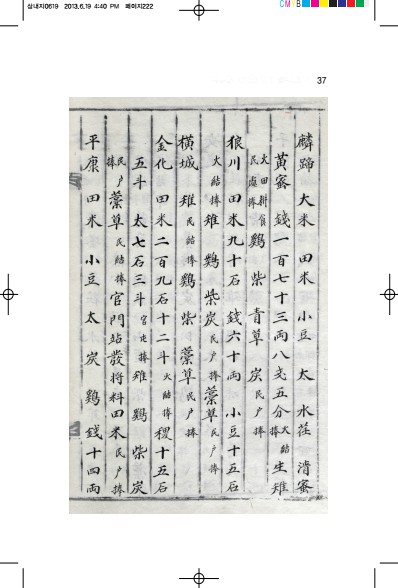 삼내지0619 2013.6.19 4:40 PM 페이지222
CMYB
37
麟蹄 大米 田米 小豆 太 水荏 清蜜
黃蜜 錢一百七十三両八戔五分 大結捧 生雉
大田耕省民處捧 鷄 柴 青草 炭 民戶捧
狼川 田米九十石 錢六十両 小豆十五石
大結捧 雉 鷄 柴炭 民戶捧 藁草 民戶捧
橫城 雉 民結捧 鷄 柴 藁草 民戶捧
金化 田米二百九石十二斗 火結捧 稷十五石
五斗 太七石三斗 官屯捧 雉 小鷄 柴 炭
民戶捧 藁草 民結捧 官門站發將料田米 民戶捧
平康 田米 小豆 太 炭 鷄 錢十四両